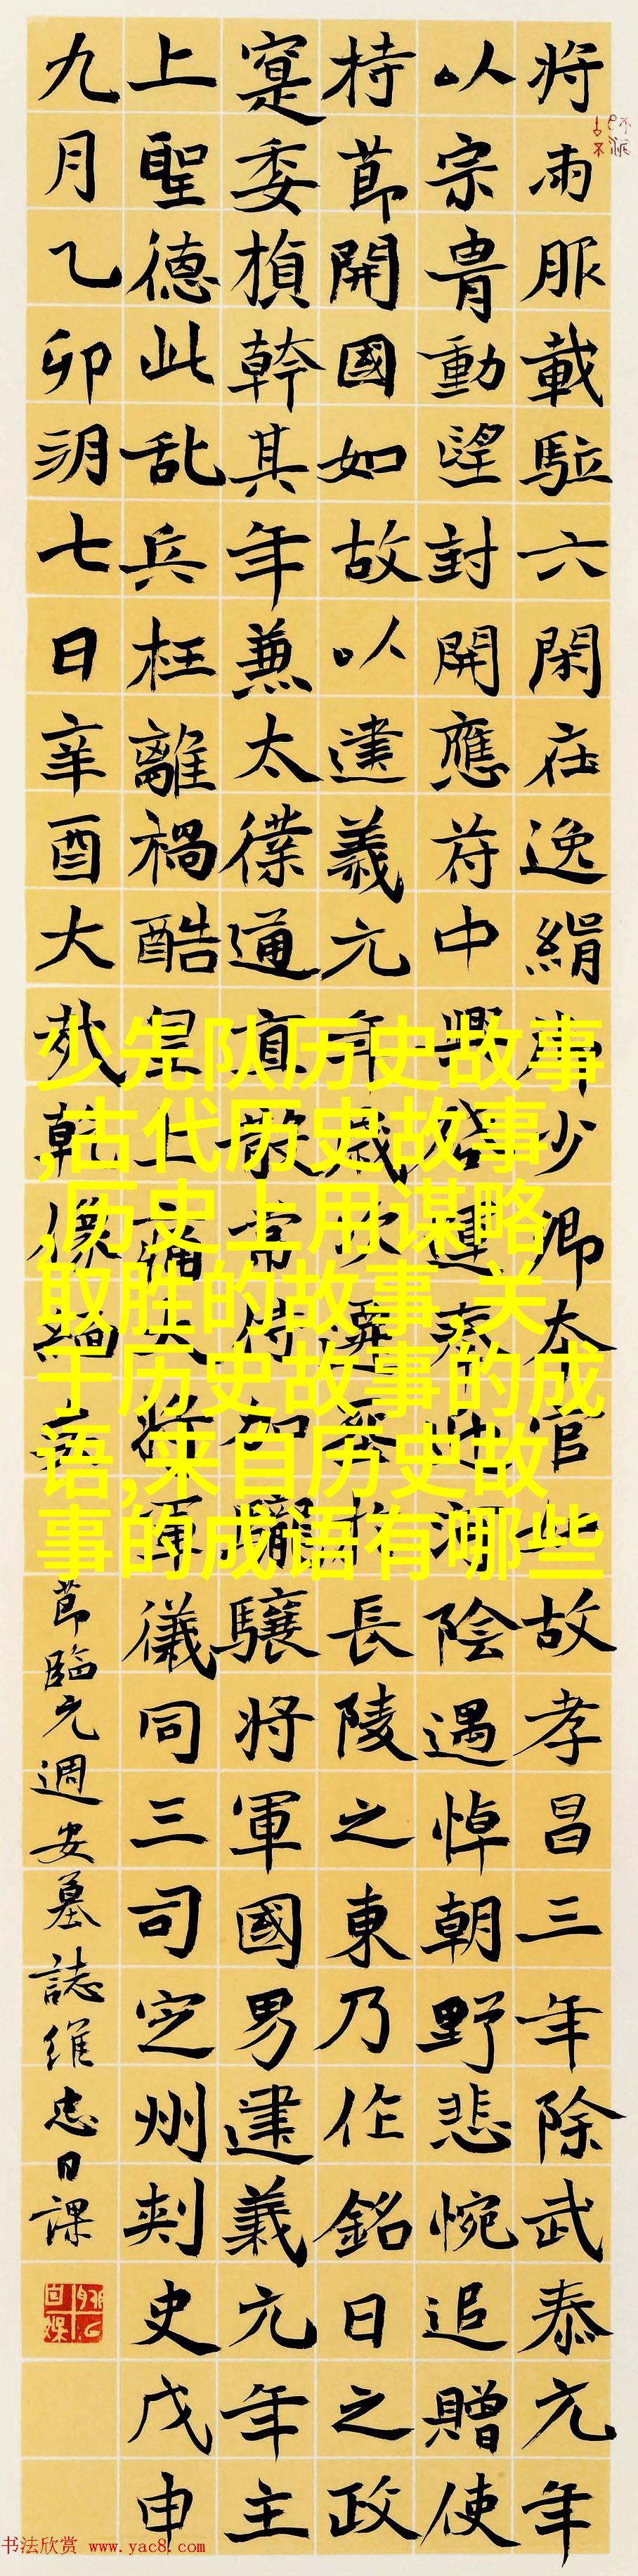 将雨服載駈六閑在逸絹少卿太官些故孝昌三年除武泰元年
以宗胄動望封開應符中興運河陰遇悼朝野悲惋追贈使
持節開國如故以建義元年歲次長陵之東乃作銘日之政
寔委楨幹其年兼太僕通直散常侍加驤将軍國男建義元年主
上聖德此乱兵枉離禍酷皇上将軍儀同三司定州刺史戊申
九月乙卯朔七日辛酉大哉乾像
節臨元週安墓誌維忠日課
少先队历史故事
,古代历史故事
,历史上用谋略
取胜的故事,关
于历史故事的成
语,来自历史故
事的成语有哪些
书法欣赏 www.yac8.com